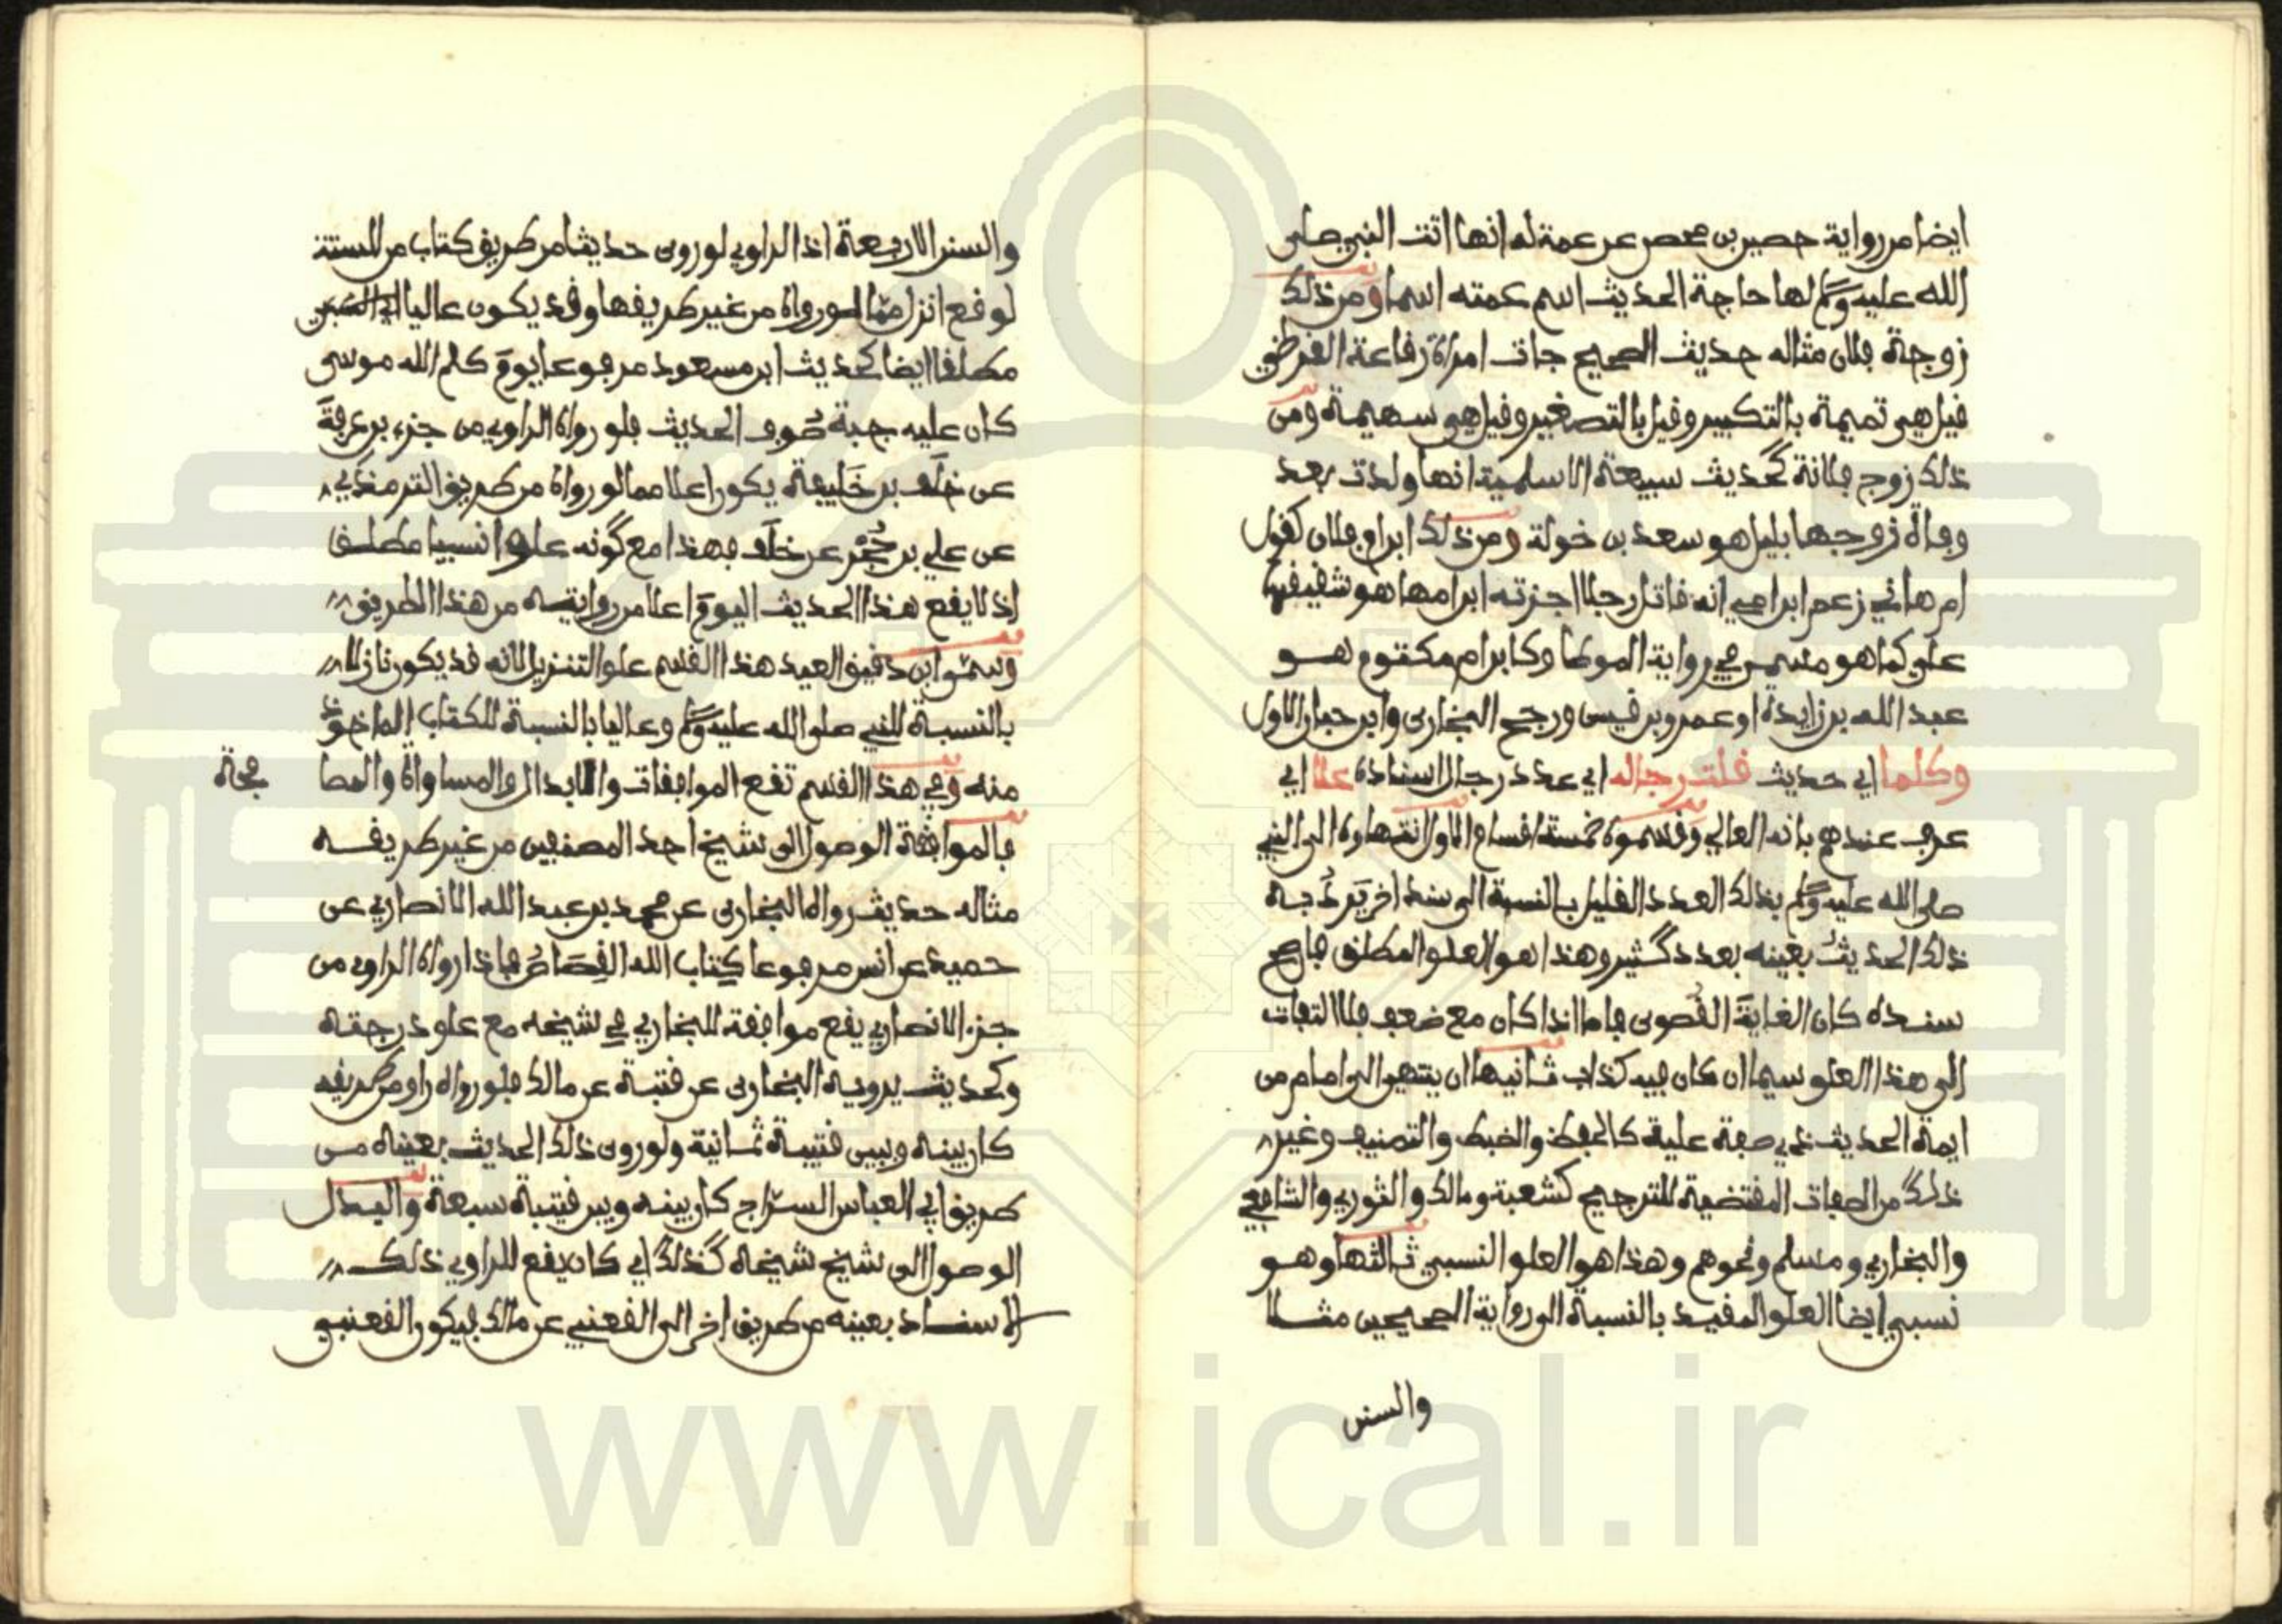 ايضا من رواية حصين بن محصن عن عمة له انها اتت النبي صلى
الله عليه وسلم لها حاجة الحديث اسم عمته اسما ومن ذلك
زوجة فلان مثاله حديث الصحيح جات امراة رفاعة القرظي
قيل هي تميمة بالتكبير وقيل بالتصغير وقيل هي سهيمة ومن
ذلك زوج فلانة كحديث سبيعة الاسلمية انها ولدت بعد
وفاة زوجها بليل هو سعد بن خولة ومن ذلك ابن ام فلان كقول
ام هاني زعم ابن امي انه قاتل رجلا اجرته ابن امها هو شقيقها
علي كما هو مسمى في رواية الموطا وكابن ام مكتوم هو
عبد الله بن زايدة او عمرو بن قيس ورجح البخاري وابن حبان الاول
وكلما اي حديث قلت رجاله اي عدد رجال اسناده علا اي
عرف عندهم بانه العالي وقسموه خمسة اقسام الاول انتهاوه الى النبي
صلى الله عليه وسلم بذلك العدد القليل بالنسبة الى سند اخر يَرِدُ به
ذلك الحديث بعينه بعدد كثير وهذا هو العلو المطلق فان صح
سنده كان الغاية القصوى فاما اذا كان مع ضعف فلا التفات
الى هذا العلو سيما ان كان فيه كذاب ثانيها ان ينتهي الى امام من
ايمة الحديث ذي صفة علية كالحفظ والضبط والتصنيف وغير
ذلك من الصفات المقتضية للترجيح كشعبة ومالك والثوري والشافعي
والبخاري ومسلم ونحوهم وهذا هو العلو النسبي ثالثها وهو
نسبي ايضا العلو المقيد بالنسبة الى رواية الصحيحين مثلا
والسنن
والسنن الاربعة اذ الراوي لو روى حديثا من طريق كتاب من الستة
لوقع انزل مما لو رواه من غير طريقها وقد يكون عاليا
مطلقا ايضا كحديث ابن مسعود مرفوعا يوم كلم الله موسى
كان عليه جبة صوف الحديث فلو رواه الراوي من جزء بن عرفة
عن خلف بن خليفة يكون اعلا مما لو رواه من طريق الترمذي
عن علي بن حُجْر عن خلف فهذا مع كونه علوا نسبيا مطلق
اذ لا يقع هذا الحديث اليوم اعلا من روايته من هذا الطريق
وسمى ابن دقيق العيد هذا القسم علو التنزيل لانه قد يكون نازلا
بالنسبة للنبي صلى الله عليه وسلم وعاليا بالنسبة للكتاب الماخوذ
منه وفي هذا القسم تقع الموافقات والابدال والمساواة والمصا
فحة
فالموافقة الوصول الى شيخ احد المصنفين من غير طريقه
مثاله حديث رواه البخاري عن محمد بن عبد الله الانصاري عن
حميد عن انس مرفوعا كتاب الله القصاص فاذا رواه الراوي من
جزء الانصاري يقع موافقة للبخاري في شيخه مع علو درجته
وكحديث يرويه البخاري عن قتبة عن مالك فلو رواه راو من طريقه
كان بينه وبين قتيبة ثمانية ولو روى ذلك الحديث بعينه من
طريق ابي العباس السرّاج كان بينه وبين قتيبة سبعة والبدل
الوصول الى شيخ شيخه كذلك اي كان يقع للراوي ذلك
الاسناد بعينه من طريق اخر الى القعنبي عن مالك فيكون القعنبي